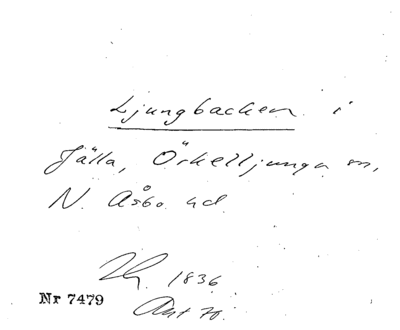 Ljungbacken i
Fjälla, Örkelljunga sn,
N. Åsbo hd
1836
Nr 7479